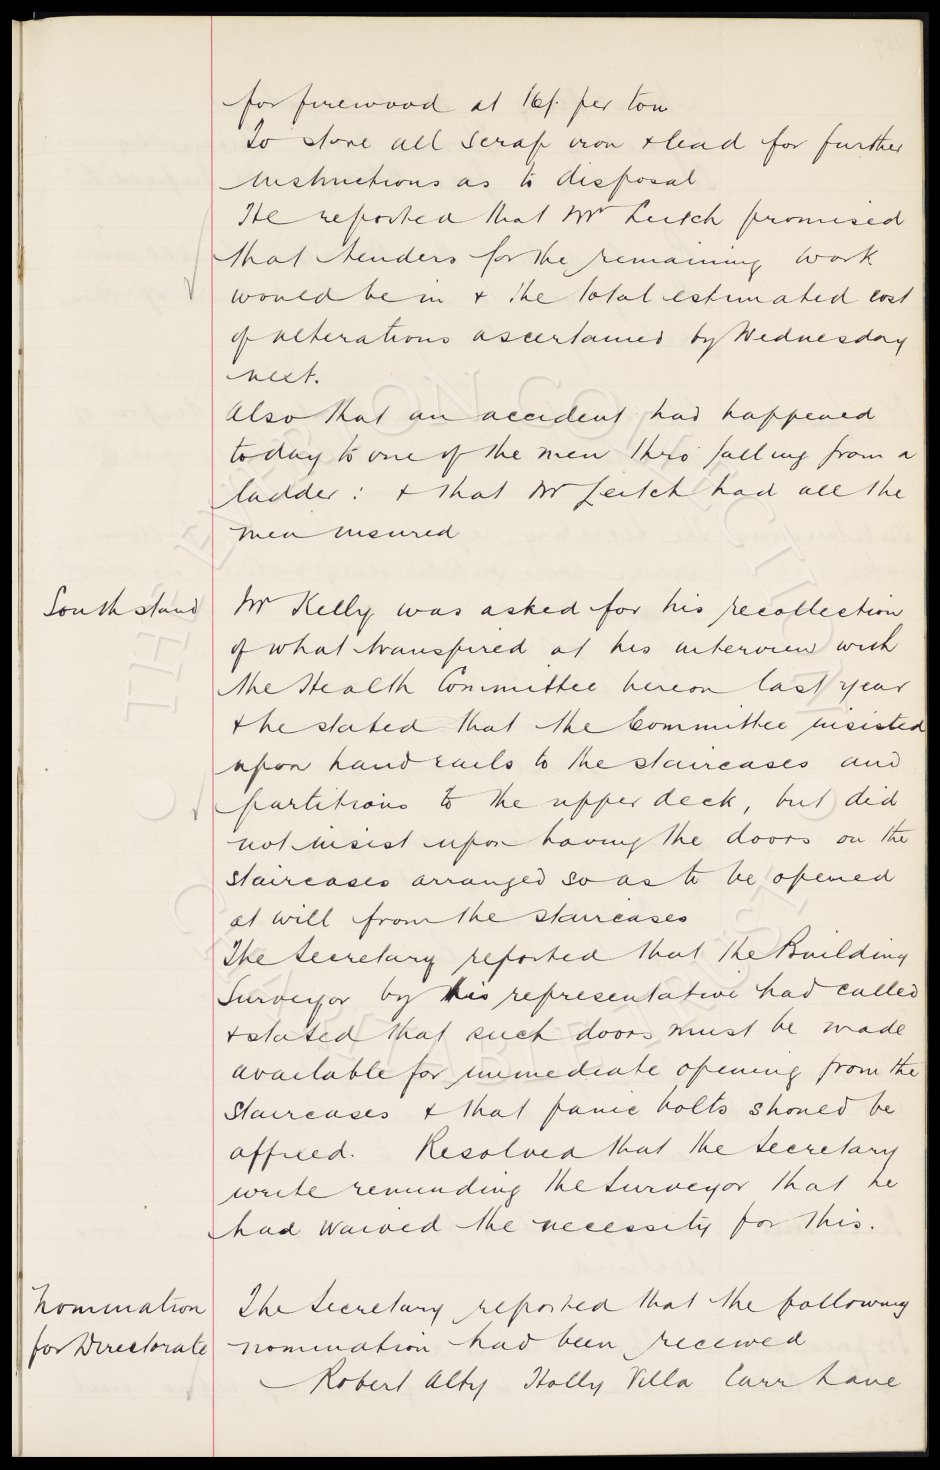 for firewood at 16/. per ton
To store all scrap iron + lead for further
instructions as to disposal
He reported that Mr Leitch promised
that tenders for the remaining work
would be in + the total estimated cost
of alterations ascertained by Wednesday
next.
Also that an accident had happened
today to one of the men thro' falling from a
ladder: + that Mr Leitch had all the
men insured
South stand
Mr Kelly was asked for his recollection
of what transpired at his interview with
the Health Committee hereon last year
+ he stated that the Committee insisted
upon hand rails to the staircases and
partitions to the upper deck, but did
not insist upon having the doors on the
staircases arranged so as to be opened
at will from the staircases
The Secretary reported that the Building
Surveyor by his representative had called
+ stated that such doors must be made
available for immediate opening from the
staircases + that panic bolts should be
affixed. Resolved that the Secretary
write reminding the Surveyor that he
had waived the necessity for this.
Nomination
for Directorate
The Secretary reported that the following
nomination had been received
Robert Alty Holly Villa Carr Lane